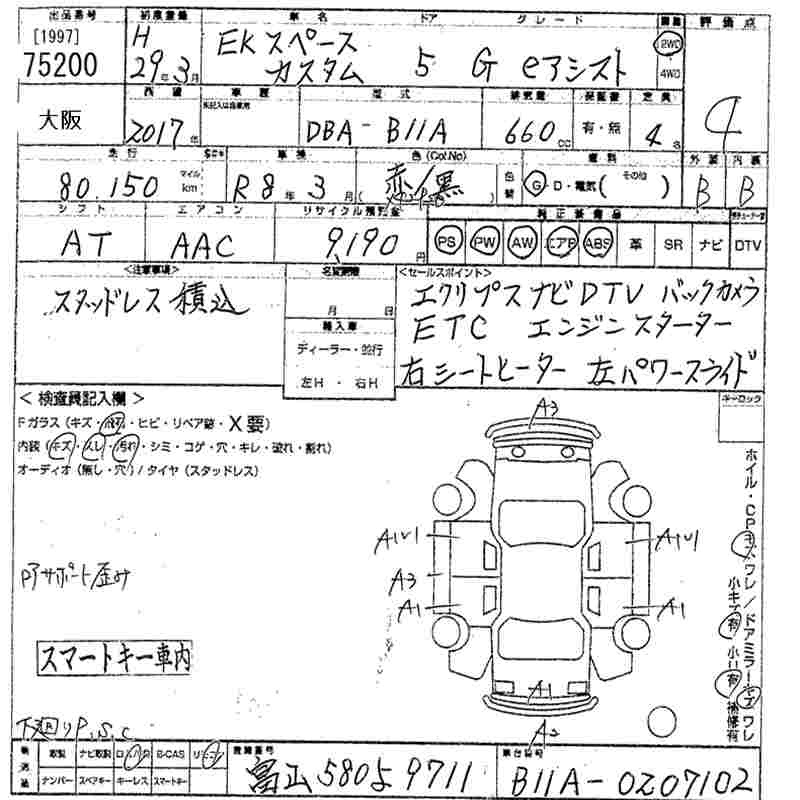 出品番号 初度登録 車名 ドア グレード 評価点
[1997] 75200 H 29年3月 EKスペース カスタム 5 G eアシスト 2WD 4WD
大阪 西暦 車歴 型式 排気量 保証書 定員
2017年 DBA-B11A 660cc 有・無 4名 4
走行 車検 色(Col.No) 燃料 外装 内装
80.150 マイル km R8年3月 赤/黒 色替 G・D・電気( その他 ) B B
シフト エアコン リサイクル預託金 純正装備品
AT AAC 9,190円 PS PW AW エアB ABS 革 SR ナビ DTV
<注意事項> 名変期限 <セールスポイント>
スタッドレス積込 月 日 エクリプスナビDTV バックカメラ
輸入車 ETC エンジンスターター
ディーラー・並行
左H・右H 右シートヒーター 左パワースライド
<検査員記入欄> キーロック
Fガラス(キズ・飛石・ヒビ・リペア跡・X要)
内装(キズ・スレ・汚れ・シミ・コゲ・穴・キレ・破れ・割れ)
オーディオ(無し・穴)/タイヤ(スタッドレス)
A3
A1 A1
A3
A1 A1
A1
A2
ホイル・CPキズ、ワレ/ドアミラーキズ ワレ
小キズ有 小凹有 補修有
Pアサポート歪み
スマートキー車内
下廻りP.S.C
後送品 取説 ナビ取説 ロムバR B-CAS リモコン
ナンバー スペアキー キーレス スマートキー
登録番号 富山 580 よ 9711
車台番号 B11A-0207102